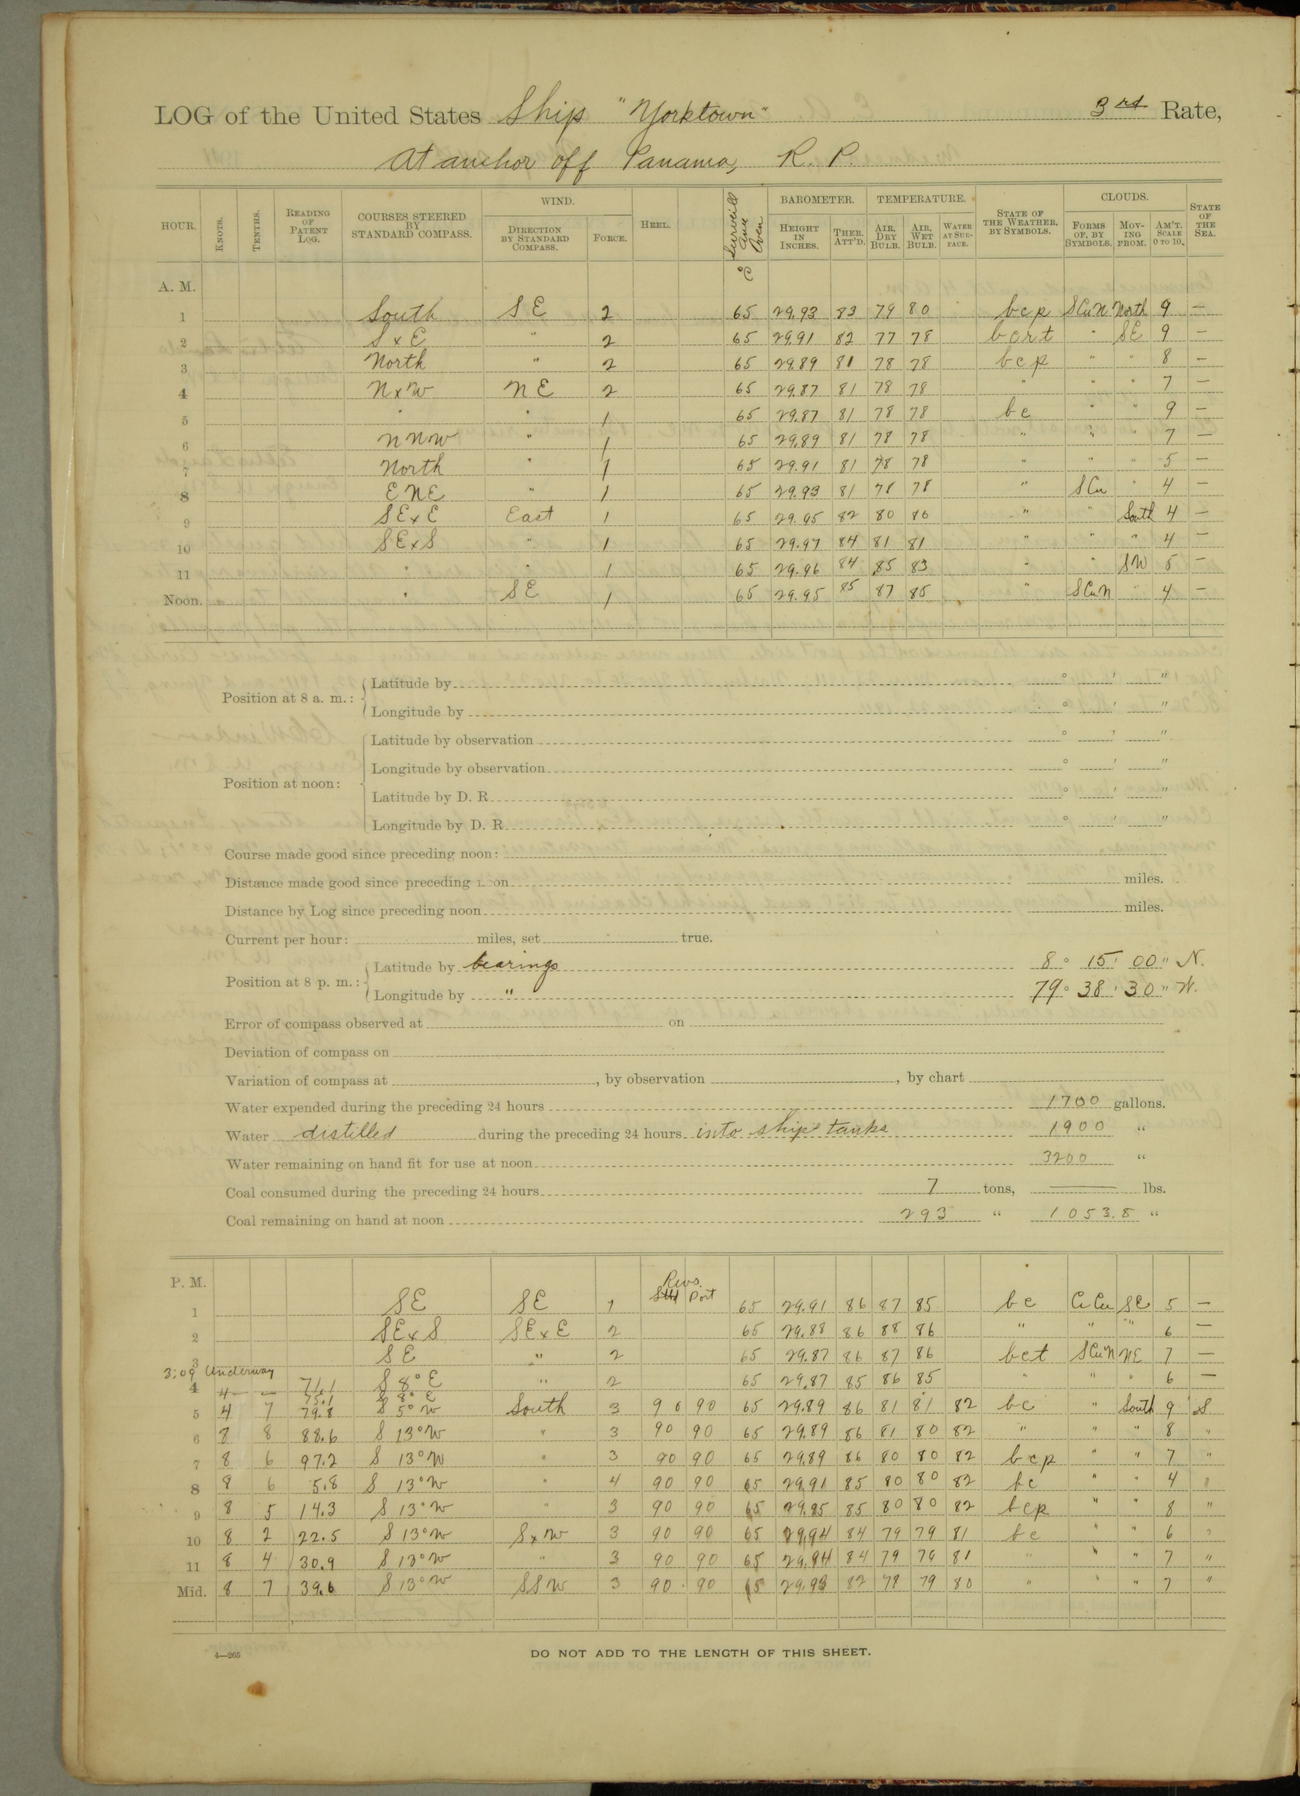 LOG of the United States Ship "Yorktown" 3rd Rate,
At anchor off Panama, R. P.
HOUR. KNOTS. TENTHS. READING OF PATENT LOG. COURSES STEERED BY STANDARD COMPASS. WIND. DIRECTION BY STANDARD COMPASS. FORCE. HEEL. BAROMETER. HEIGHT IN INCHES. THER. ATT'D. TEMPERATURE. AIR, DRY BULB. AIR, WET BULB. WATER AT SURFACE. STATE OF THE WEATHER, BY SYMBOLS. CLOUDS. FORMS OF, BY SYMBOLS. MOVING FROM. AM'T. SCALE 0 TO 10. STATE OF THE SEA.
A. M.
1 South SE 2 65 29.93 83 79 80 bcp SCuN North 9 —
2 SxE " 2 65 29.91 82 77 78 bcrt " SE 9 —
3 North " 2 65 29.89 81 78 78 bcp " " 8 —
4 NxW NE 2 65 29.87 81 78 78 " " " 7 —
5 " " 1 65 29.87 81 78 78 bc " " 9 —
6 NNW " 1 65 29.89 81 78 78 " " " 7 —
7 North " 1 65 29.91 81 78 78 " " " 5 —
8 ENE " 1 65 29.93 81 78 78 " SCu " 4 —
9 SExE East 1 65 29.95 82 80 80 " " South 4 —
10 SExS " 1 65 29.97 84 81 81 " " " 4 —
11 " " 1 65 29.96 84 85 83 " " SW 5 —
Noon. " SE 1 65 29.95 85 87 85 " SCuN " 4 —
Position at 8 a. m.: Latitude by ° ' "
Longitude by ° ' "
Position at noon: Latitude by observation ° ' "
Longitude by observation ° ' "
Latitude by D. R. ° ' "
Longitude by D. R. ° ' "
Course made good since preceding noon:
Distance made good since preceding noon miles.
Distance by Log since preceding noon miles.
Current per hour: miles, set true.
Position at 8 p. m.: Latitude by bearings 8° 15' 00" N.
Longitude by " 79° 38' 30" W.
Error of compass observed at on
Deviation of compass on
Variation of compass at , by observation , by chart
Water expended during the preceding 24 hours 1700 gallons.
Water distilled during the preceding 24 hours into ship's tanks 1900 "
Water remaining on hand fit for use at noon 3200 "
Coal consumed during the preceding 24 hours 7 tons, — lbs.
Coal remaining on hand at noon 293 " 1053.8 "
P. M. Revs.
Stb'd Port
1 SE SE 1 65 29.91 86 87 85 bc CiCu SE 5 —
2 SExS SExE 2 65 29.88 86 88 86 " " " 6 —
3 SE " 2 65 29.87 86 87 86 bct SCuN NE 7 —
3:09 Underway
4 4 — 71.1 S 8° E " 2 65 29.87 85 86 85 " " " 6 —
75.1 S 8° E
5 4 7 79.8 S 5° W South 3 90 90 65 29.89 86 81 81 82 bc " South 9 S
6 8 8 88.6 S 13° W " 3 90 90 65 29.89 86 81 80 82 " " " 8 "
7 8 6 97.2 S 13° W " 3 90 90 65 29.89 86 80 80 82 bcp " " 7 "
8 8 6 5.8 S 13° W " 4 90 90 65 29.91 85 80 80 82 bc " " 4 "
9 8 5 14.3 S 13° W " 3 90 90 65 29.95 85 80 80 82 bcp " " 8 "
10 8 2 22.5 S 13° W SxW 3 90 90 65 29.94 84 79 79 81 bc " " 6 "
11 8 4 30.9 S 13° W " 3 90 90 65 29.94 84 79 79 81 " " " 7 "
Mid. 8 7 39.6 S 13° W SSW 3 90 90 65 29.93 82 78 79 80 " " " 7 "
4—265
DO NOT ADD TO THE LENGTH OF THIS SHEET.